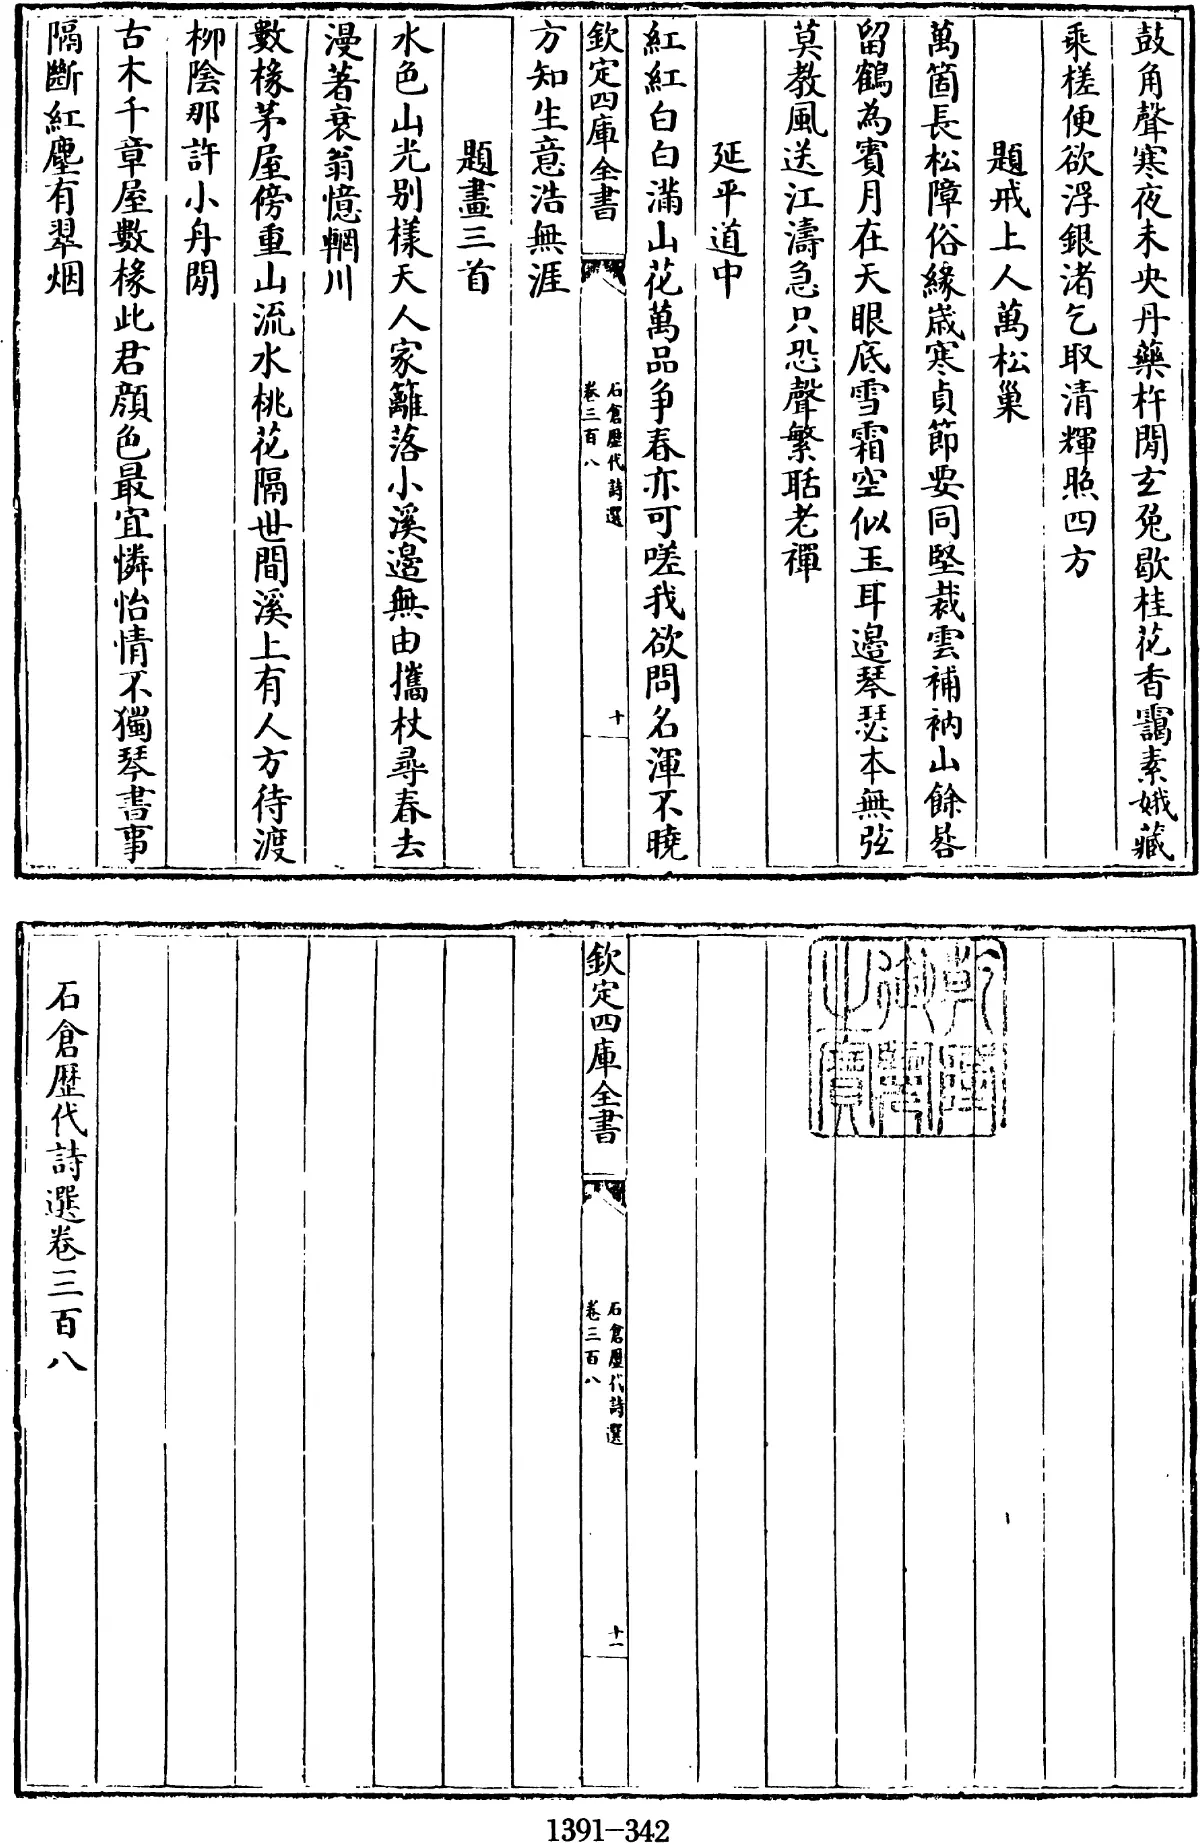 鼓角聲寒夜未央丹藥杵閒玄兔歇桂花香靄素娥藏
乘槎便欲浮銀渚乞取清輝照四方
題戒上人萬松巢
萬箇長松障俗緣歲寒貞節要同堅裁雲補衲山餘砦
留鶴為賓月在天眼底雪霜空似玉耳邉琴瑟本無弦
莫教風送江濤急只恐聲繁聒老禪
延平道中
紅紅白白滿山花萬品爭春亦可嗟我欲問名渾不曉
欽定四庫全書
石倉歷代詩選
卷三百八
十
方知生意浩無涯
題畫三首
水色山光別様天人家籬落小溪邉無由攜杖尋春去
漫著衰翁憶輞川
數椽茅屋傍重山流水桃花隔世間溪上有人方待渡
柳陰那許小舟閒
古木千章屋數椽此君顔色最宜憐怡情不獨琴書事
隔斷紅塵有翠烟
乾隆御覽之寶
欽定四庫全書
石倉歷代詩選
卷三百八
十一
石倉歷代詩選卷三百八
1391-342